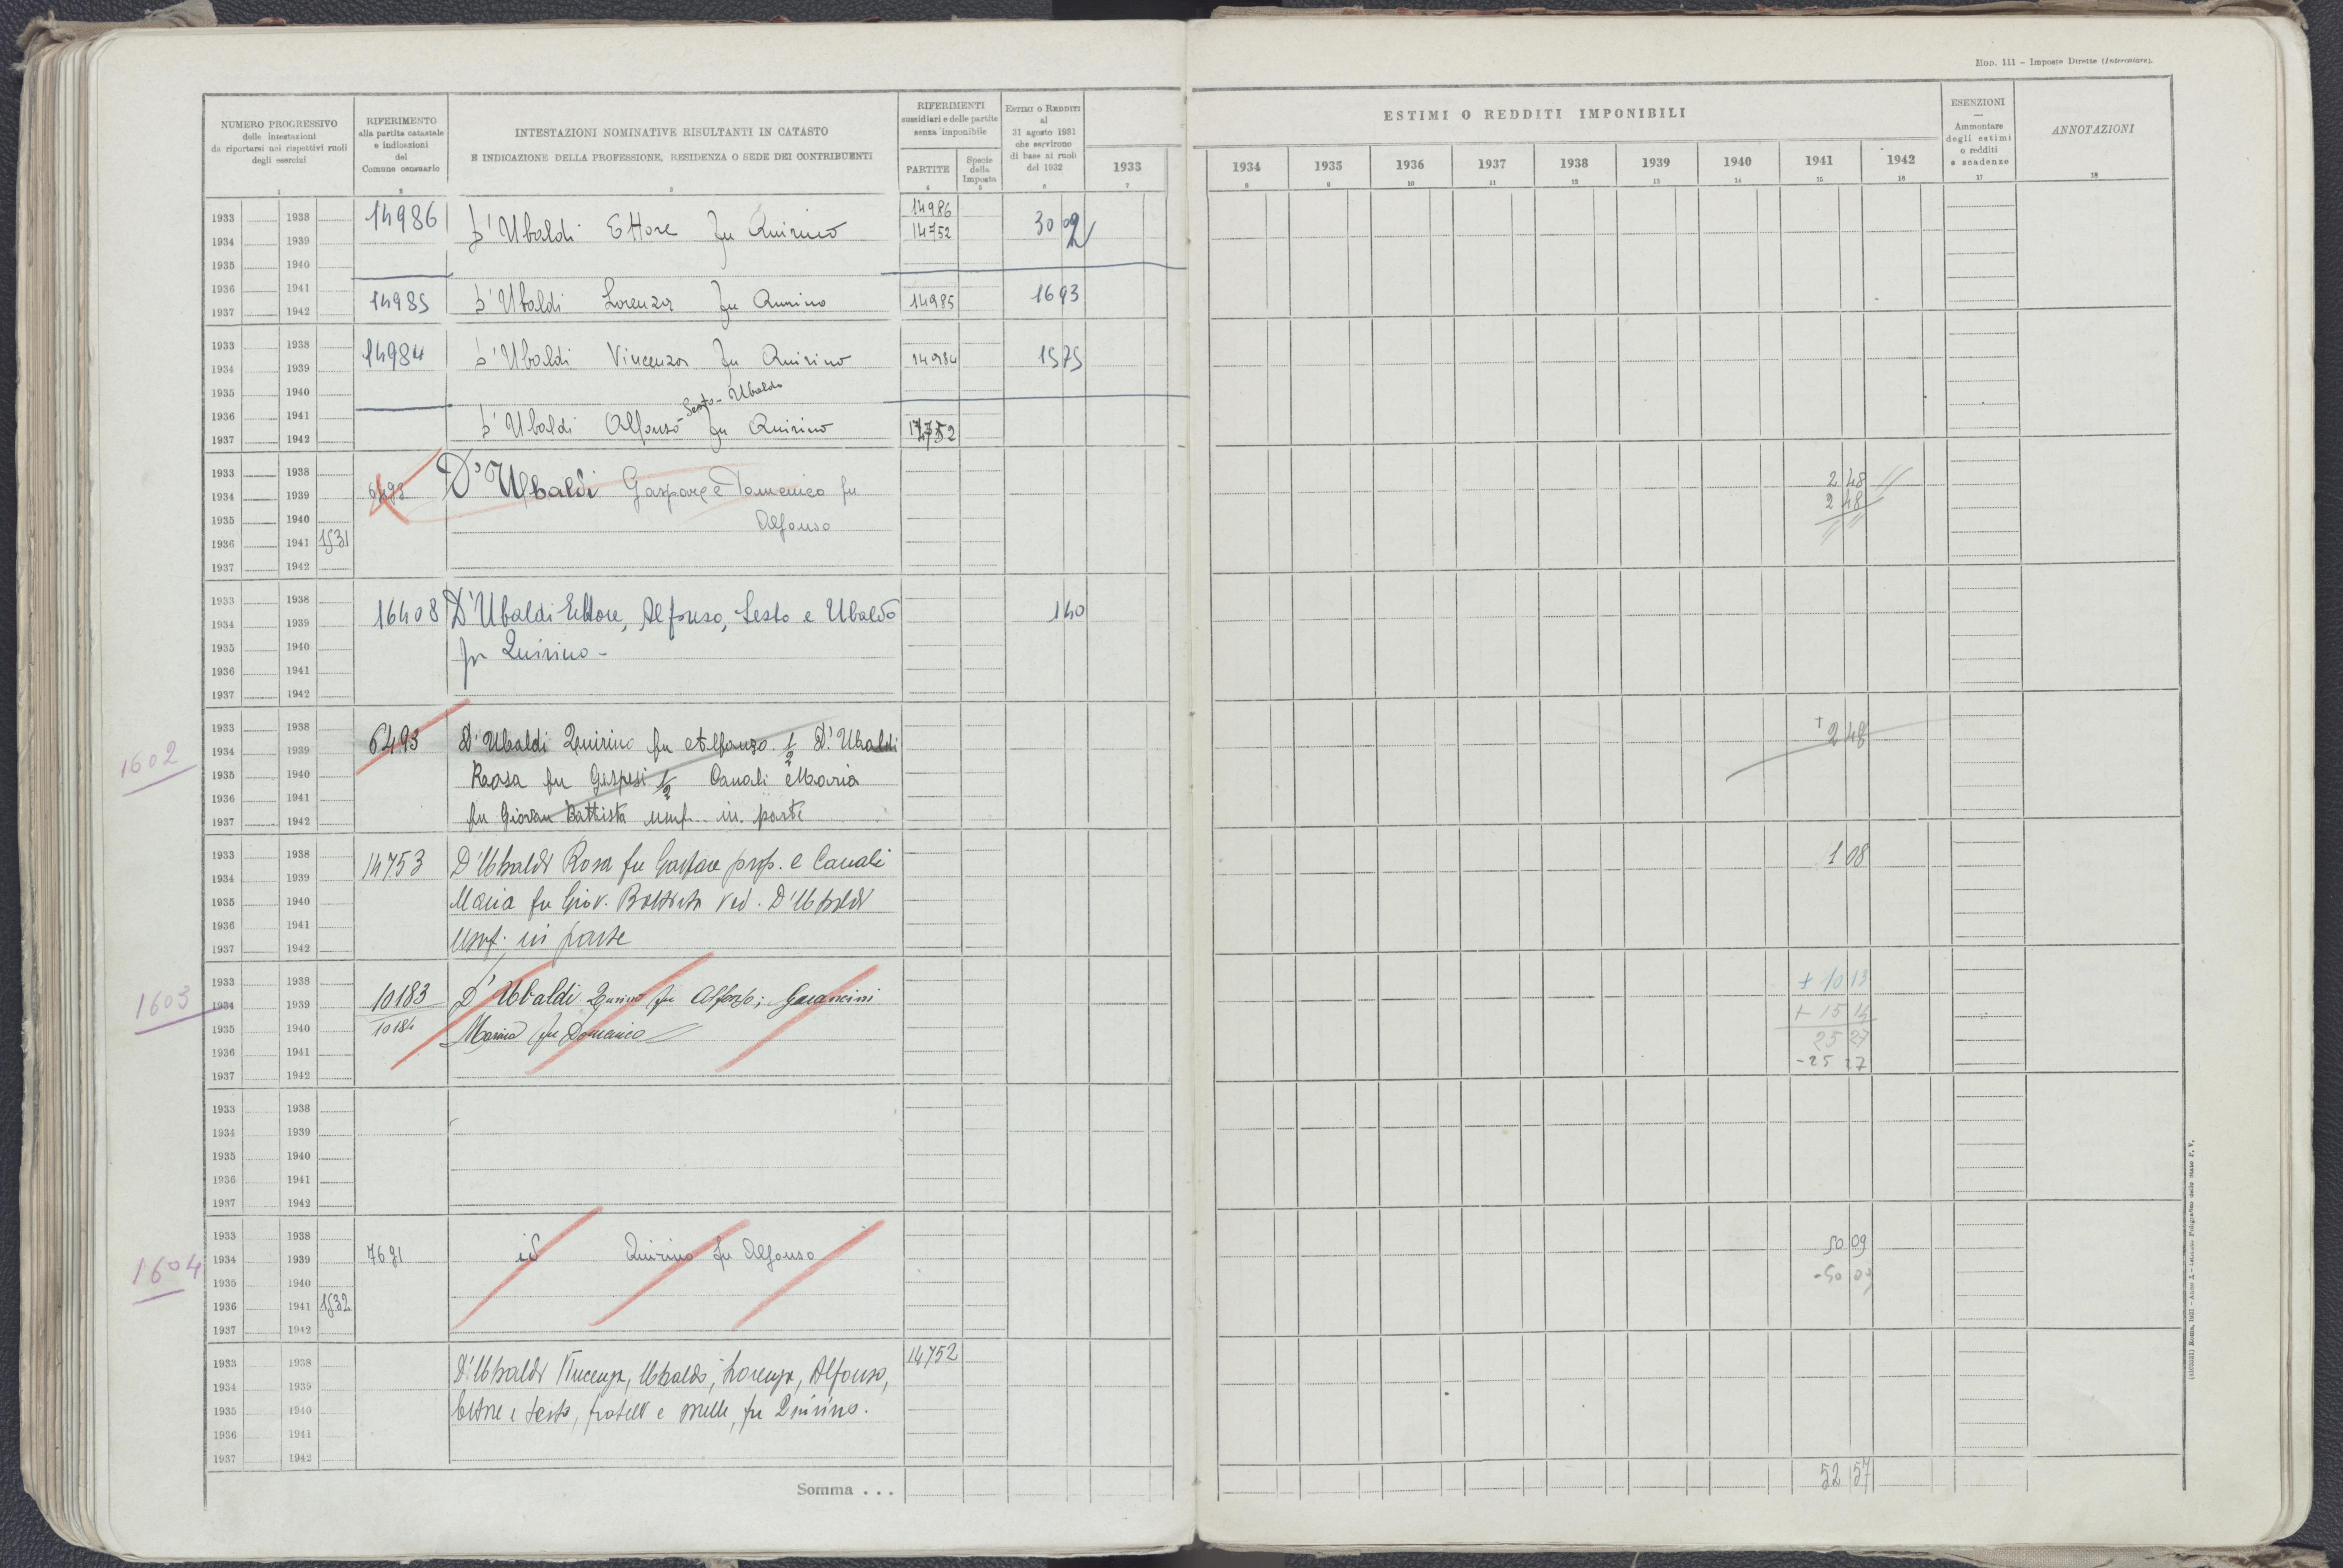 Mod. 111 – Imposte Dirette (Intercalare).
NUMERO PROGRESSIVO
delle intestazioni
da riportarsi nei rispettivi ruoli
degli esercizi
1
RIFERIMENTO
alla partita catastale
e indicazioni
del
Comune censuario
2
INTESTAZIONI NOMINATIVE RISULTANTI IN CATASTO
E INDICAZIONE DELLA PROFESSIONE, RESIDENZA O SEDE DEI CONTRIBUENTI
3
RIFERIMENTI
sussidiari e delle partite
senza imponibile
PARTITE
4
Specie
della
Imposta
5
ESTIMI O REDDITI
al
31 agosto 1931
che servirono
di base ai ruoli
del 1932
6
1933
7
ESTIMI O REDDITI IMPONIBILI
1934 1935 1936 1937 1938 1939 1940 1941 1942
8 9 10 11 12 13 14 15 16
ESENZIONI
—
Ammontare
degli estimi
o redditi
e scadenze
17
ANNOTAZIONI
18
1933 1938 14986 D'Ubaldi Ettore fu Quirino 14986
1934 1939 14752 30 02
1935 1940
1936 1941
1937 1942 14985 D'Ubaldi Lorenza fu Quirino 14985 16 93
1933 1938 14984 D'Ubaldi Vincenza fu Quirino 14984 15 75
1934 1939
1935 1940
1936 1941 - Sesto - Ubaldo
1937 1942 D'Ubaldi Alfonso fu Quirino 14752
1933 1938 D'Ubaldi Gaspare e Domenico fu 2 48
1934 1939 6492 2 48
1935 1940 Alfonso
1936 1941 1531
1937 1942
1933 1938 16408 D'Ubaldi Ettore, Alfonso, Sesto e Ubaldo 1 40
1934 1939
1935 1940 fu Quirino -
1936 1941
1937 1942
1933 1938 6493 D'Ubaldi Quirino fu Alfonso 1/2 D'Ubaldi + 2 48
1602
1934 1939
1935 1940 Rosa fu 1/2 Canali Maria
1936 1941
1937 1942 fu Giovan Battista usuf. in parte
1933 1938 14753 D'Ubaldi Rosa fu Gaspare prop. e Canali 1 08
1934 1939
1935 1940 Maria fu Giov. Battista ved. D'Ubaldi
1936 1941
1937 1942 Usuf. in parte
1933 1938 + 10 13
1603
1934 1939 10183 D'Ubaldi Quirino fu Alfonso; + 15 14
1935 1940 10184 fu Domenico 25 27
1936 1941 - 25 27
1937 1942
1933 1938
1934 1939
1935 1940
1936 1941
1937 1942
1933 1938 50 09
1604
1934 1939 7631 id Quirino fu Alfonso
1935 1940 - 50 09
1936 1941 1532
1937 1942
1933 1938 D'Ubaldi Vincenza, Ubaldo, Lorenza, Alfonso, 14752
1934 1939
1935 1940 Ettore e Sesto, fratelli e sorelle, fu Quirino.
1936 1941
1937 1942
Somma . . . 52 57